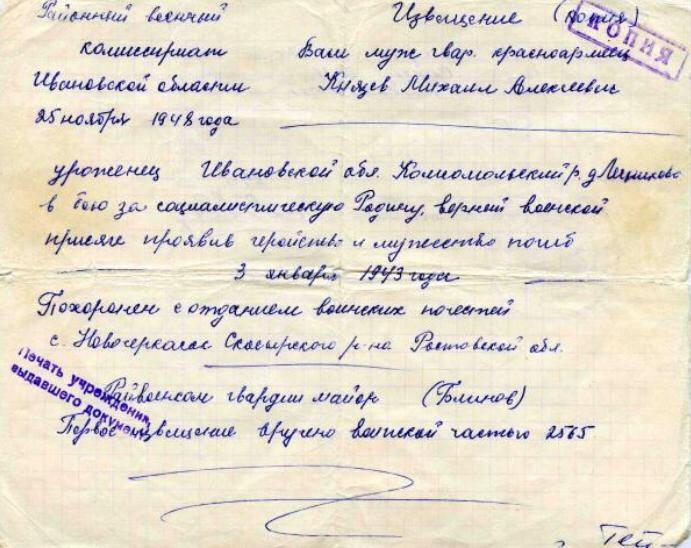 Районный военный
комиссариат
Ивановской области
25 ноября 1948 года
Извещение (копия)
КОПИЯ
Ваш муж гвар. красноармеец
Князев Михаил Алексеевич
уроженец Ивановской обл. Комсомольский р. д
в бою за социалистическую Родину, верный воинской
присяге проявив геройство и мужество погиб
3 января 1943 года
Похоронен с отданием воинских почестей
с. Новочеркасск Скосырского р-на Ростовской обл.
Печать учреждения,
выдавшего документ
Райвоенком гвардии майор (Блинов)
Первое извещение вручено воинской частью 2565